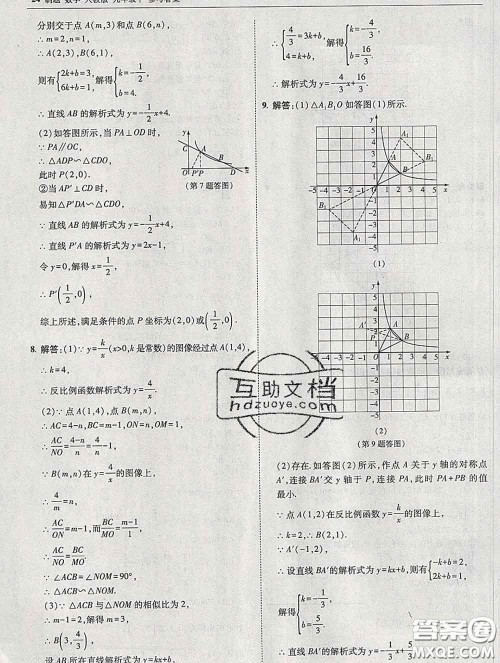 分别交于点 A(m,3)和点 B(6,n),
∴ m=2,n=1,
∴ A(2,3),B(6,1),
则有{2k+b=3, 6k+b=1, 解得{k=-1/2, b=4.
∴ 直线 AB 的解析式为 y=-1/2x+4.
(2)如答图所示,当 PA⊥OD 时,
∵ PA∥OC,
∴ △ADP∽△CDO,
此时 P(2,0).
②当 AP′⊥CD 时,
易知 △P′DA∽△CDO,
(第 7 题答图)
∵ 直线 AB 的解析式为 y=-1/2x+4,
∴ 直线 P′A 的解析式为 y=2x-1,
令 y=0,解得 x=1/2,
∴ P′(1/2,0),
综上所述,满足条件的点 P 坐标为(2,0)或(1/2,0).
8. 解答:(1)∵ y=k/x(x>0,k 是常数)的图像经过点 A(1,4),
∴ k=4,
∴ 反比例函数解析式为 y=4/x.
(2)∵ 点 A(1,4),点 B(m,n),
∴ AC=4-n,BC=m-1,ON=n,OM=1,
∴ AC/NO=(4-n)/n=4/n-1,
∵ B(m,n)在 y=4/x 的图像上,
∴ 4/m=n,
∴ AC/ON=m-1,而 BC/MO=(m-1)/1,
∴ AC/NO=BC/MO,
∵ ∠ACB=∠NOM=90°,
∴ △ACB∽△NOM.
(3)∵ △ACB 与 △NOM 的相似比为 2,
∴ B(3,4/3),
设 AB 所在直线解析式为 y=kx+b,
∴ {4/3=3k+b, 4=k+b, 解得{k=-4/3, b=16/3.
∴ 解析式为 y=-4/3x+16/3.
9. 解答:(1)△A₁B₁O 如答图(1)所示.
(1)
(2)
(第 9 题答图)
(2)存在.如答图(2)所示,作点 A 关于 y 轴的对称点
A′,连接 BA′交 y 轴于 P,连接 PA,此时 PA+PB 的值
最小.
∵ 点 A(1,2)在反比例函数 y=k/x的图像上,
∴ k=2,
∴ 反比例函数的解析式为 y=2/x,
∵ A′(-1,2),
∴ 设直线 BA′的解析式为 y=kx+b,则有{-k+b=2, 2k+b=1,
解得{k=-1/3, b=5/3.
∴ 直线 BA′的解析式为 y=-1/3x+5/3,
互助文档
hdzuoye.com
答案圈
MXQE.COM